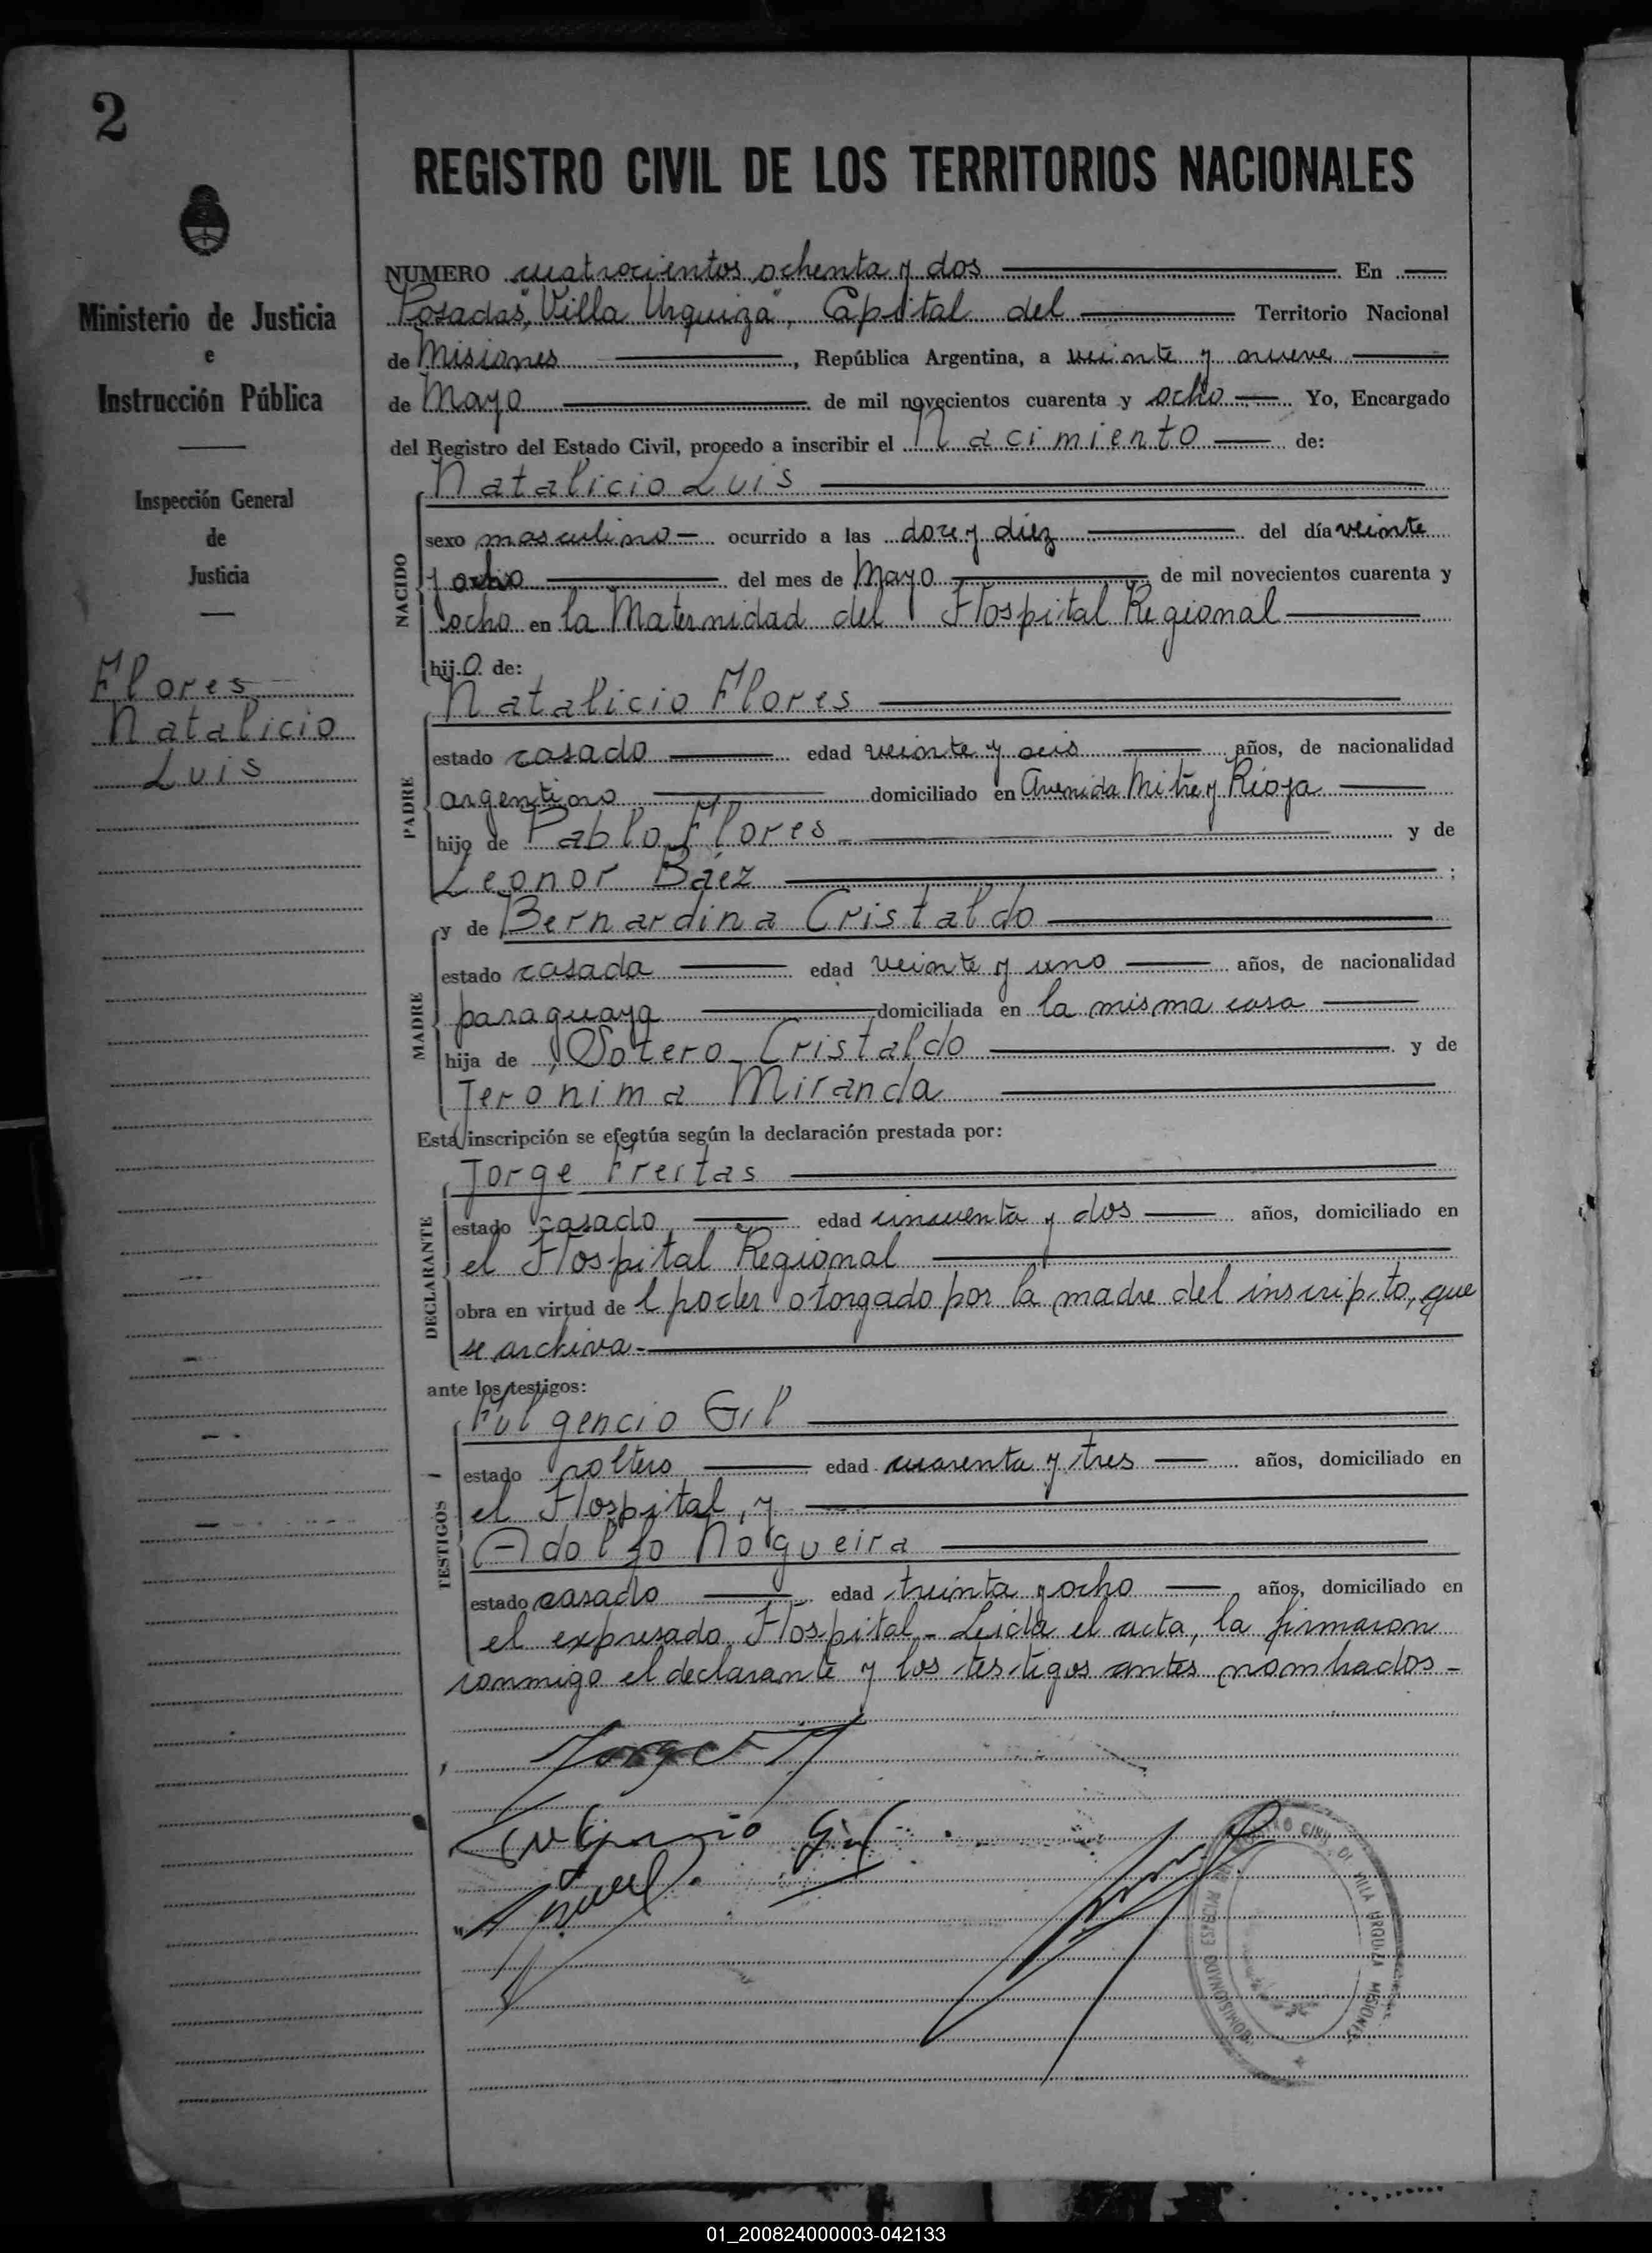 2
REGISTRO CIVIL DE LOS TERRITORIOS NACIONALES
Ministerio de Justicia
e
Instrucción Pública
Inspección General
de
Justicia
Flores
Natalicio
Luis
NUMERO cuatrocientos ochenta y dos En
Posadas, "Villa Urquiza", Capital del Territorio Nacional
de Misiones, República Argentina, a veinte y nueve
de Mayo de mil novecientos cuarenta y ocho Yo, Encargado
del Registro del Estado Civil, procedo a inscribir el Nacimiento de:
NACIDO
Natalicio Luis
sexo masculino ocurrido a las doce y diez del día veinte
y ocho del mes de Mayo de mil novecientos cuarenta y
ocho en la Maternidad del Hospital Regional
hijo de:
PADRE
Natalicio Flores
estado casado edad veinte y seis años, de nacionalidad
argentino domiciliado en Avenida Mitre y Rioja
hijo de Pablo Flores y de
Leonor Báez ;
MADRE
y de Bernardina Cristaldo
estado casada edad veinte y uno años, de nacionalidad
paraguaya domiciliada en la misma casa
hija de Sotero Cristaldo y de
Jeronima Miranda
Esta inscripción se efectúa según la declaración prestada por:
DECLARANTE
Jorge Freitas
estado casado edad cincuenta y dos años, domiciliado en
el Hospital Regional
obra en virtud de l poder otorgado por la madre del inscripto, que
se archiva.-
ante los testigos:
TESTIGOS
Fulgencio Gil
estado soltero edad cuarenta y tres años, domiciliado en
el Hospital, y
Adolfo Nogueira
estado casado edad treinta y ocho años, domiciliado en
el expresado Hospital.- Leida el acta, la firmaron
conmigo el declarante y los testigos antes nombrados-
Jorge F
Fulgencio Gil
REGISTRO CIVIL DE VILLA URQUIZA MISIONES
01_200824000003-042133